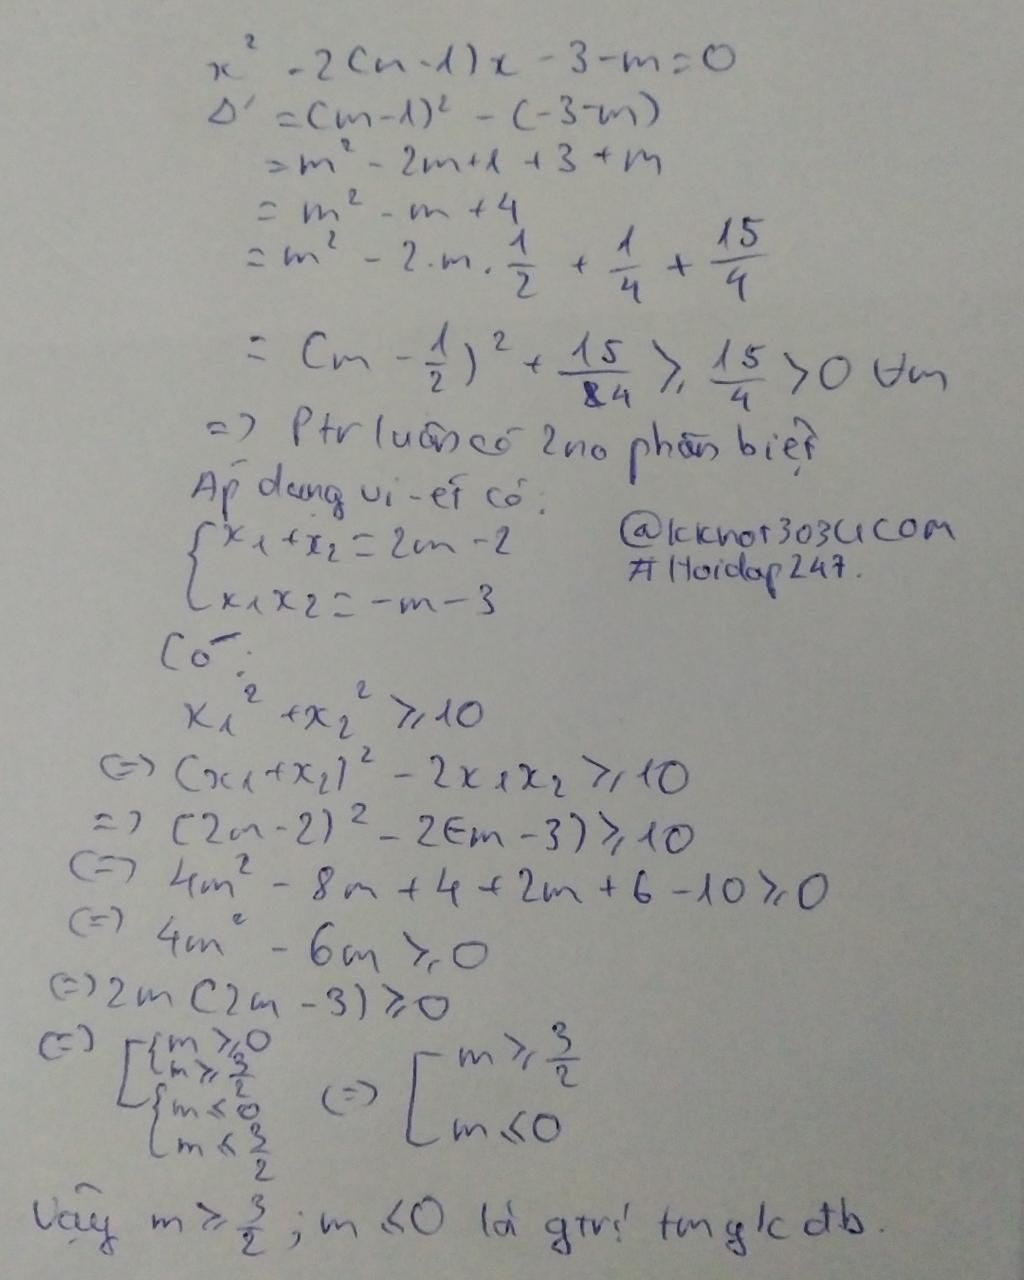 x² - 2(m-1)x - 3 - m = 0
Δ' = (m-1)² - (-3-m)
= m² - 2m+1 + 3 + m
= m² - m + 4
= m² - 2.m. 1/2 + 1/4 + 15/4
= (m - 1/2)² + 15/4 ≥ 15/4 > 0 ∀m
=> Ptr luôn có 2 no phân biệt
Áp dụng vi-ét có:
{ x₁ + x₂ = 2m - 2
x₁x₂ = -m - 3
@kknot3034com
#Hoidap247.
Có:
x₁² + x₂² ≥ 10
(=) (x₁+x₂)² - 2x₁x₂ ≥ 10
=) (2m-2)² - 2(-m-3) ≥ 10
(=) 4m² - 8m + 4 + 2m + 6 - 10 ≥ 0
(=) 4m² - 6m ≥ 0
(=) 2m(2m-3) ≥ 0
(=) [ { m ≥ 0
m ≥ 3/2
{ m ≤ 0
m ≤ 3/2
(=) [ m ≥ 3/2
m ≤ 0
Vậy m ≥ 3/2 ; m ≤ 0 là gtrị tm đk đb.